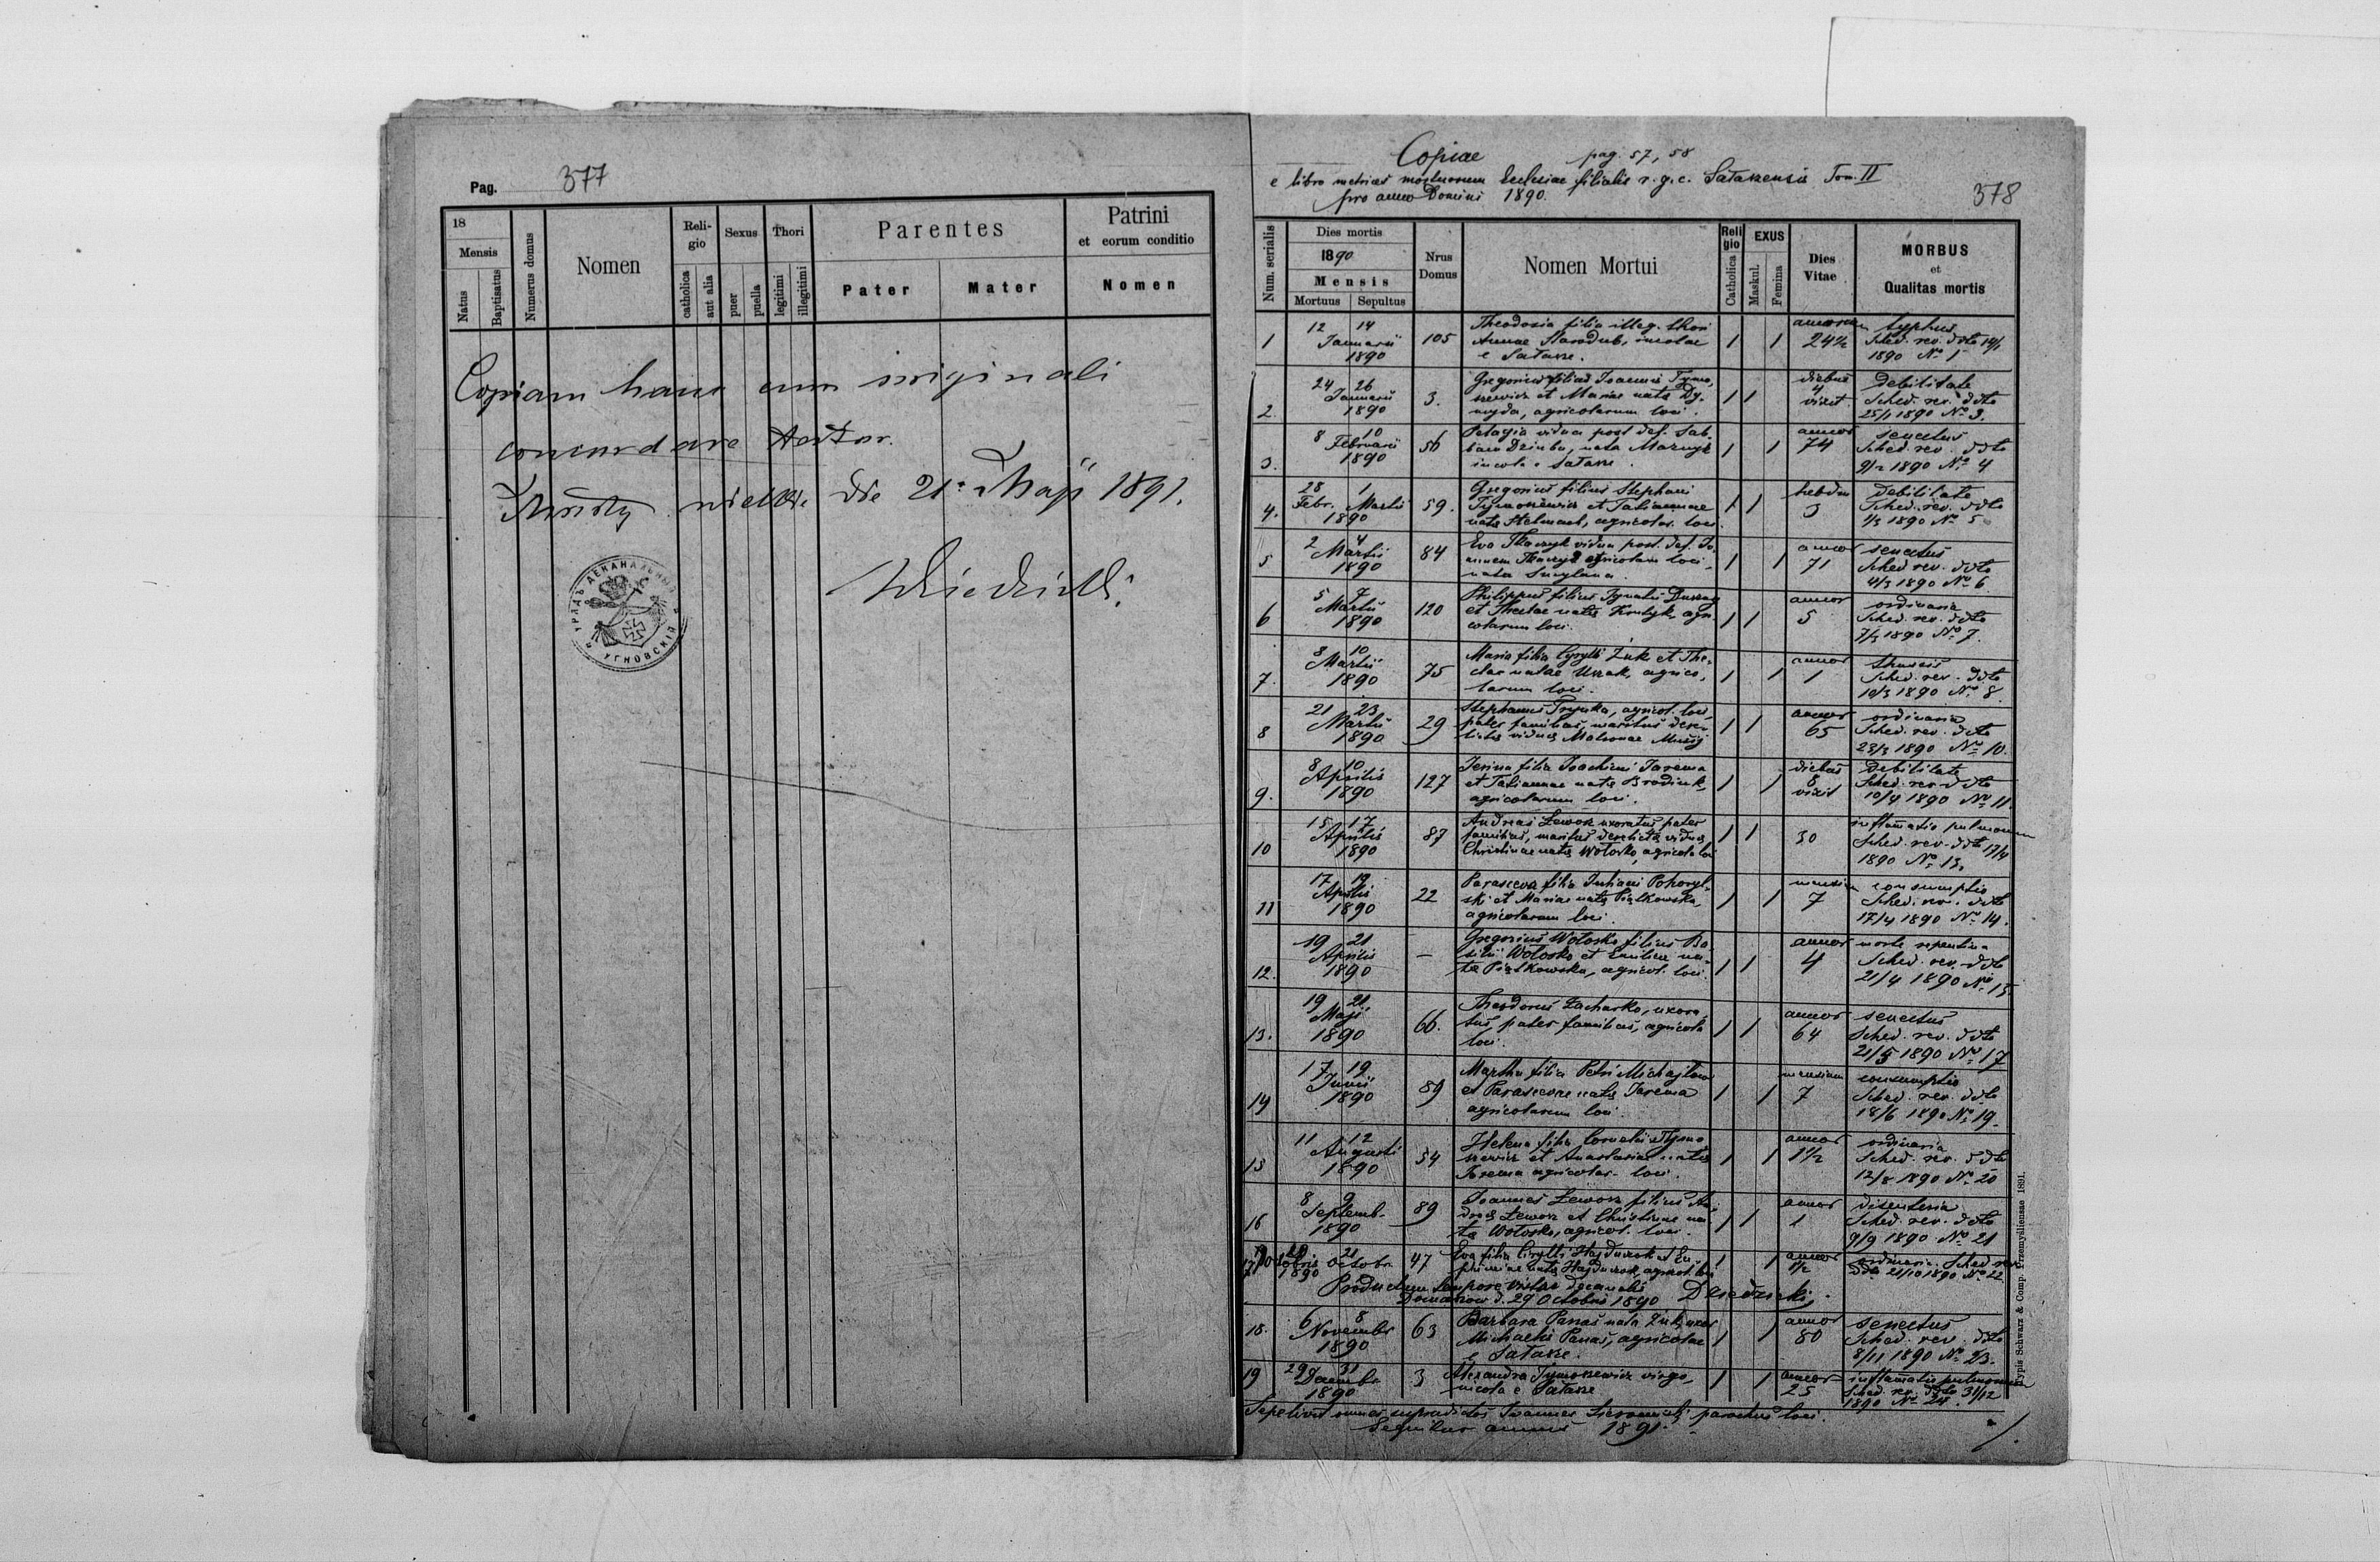 Pag. 377
18
Mensis
Natus
Baptisatus
Numerus domus
Nomen
Reli-
gio
catholica
aut alia
Sexus
puer
puella
Thori
legitimi
illegitimi
Parentes
Pater
Mater
Patrini
et eorum conditio
Nomen
Copiam hanc cum originali
concordare testor.
die 21. Maji 1891.
УРЯДЪ ДЕКАНАЛЬНЫЙ
УГНОВСКІЙ
Copiae pag. 57, 58
e libro metrices mortuorum Ecclesiae filialis r. g. c. Satanensis Tom. II
pro anno Domini 1890.
378
Num. serialis
Dies mortis
1890
Mensis
Mortuus
Sepultus
Nrus
Domus
Nomen Mortui
Reli
gio
Catholica
EXUS
Maskul.
Femina
Dies
Vitae
MORBUS
et
Qualitas mortis
1 12 14 Januarii 1890 105
Theodosia filia illeg. thori
Annae Starodub, incolae
1 1 annorum 24½
typhus
Sched. rev. ddto 14/1
1890 No 1
2. 24 26 Januarii 1890 3.
Gregorius filius Joannis Tymo-
szewicz et Mariae natae
agricolarum loci.
1 1 diebus 4 vixit
debilitate
Sched. rev. ddto
25/1 1890 No 3.
3. 8 10 Februarii 1890 56
Pelagia vidua post def. Sab-
bam Dziuba, nata
incola e
1 1 annos 74
senectus
Sched. rev. ddto
9/2 1890 No 4
4. 28 Febr. 1 Martii 1890 59.
Gregorius filius Stephani
Tymoszewicz et Tatiannae
natae Stelmach, agricolar. loci.
1 1 hebdom 3
debilitate
Sched. rev. ddto
1/3 1890 No 5
5 2 4 Martii 1890 84
Eva Tkaczyk vidua post. def. Jo-
annem Tkaczyk agricolam loci,
nata
1 1 annos 71
senectus
Sched. rev. ddto
4/3 1890 No 6
6 5 7 Martii 1890 120
Philippus filius Ignatii
et Theclae natae agri-
colarum loci.
1 1 annos 5
ordinaria
Sched. rev. ddto
7/3 1890 No 7.
7. 8 10 Martii 1890 75
Maria filia Cyrylli Żuk et The-
clae natae agrico-
larum loci.
1 1 annos 1
Sched. rev. ddto
10/3 1890 No 8
8 21 23 Martii 1890 29
Stephanus agricol. loci,
pater familias, maritus dere-
lictae viduae Matronae
1 1 annos 65
ordinaria
Sched. rev. ddto
23/3 1890 No 10.
9. 8 10 Aprilis 1890 127
filia Joachimi Jarema
et Tatiannae natae
agricolarum loci.
1 1 diebus 8 vixit
debilitate
Sched. rev. ddto
10/4 1890 No 11.
10 15 17 Aprilis 1890 87
Andreas Lewosz uxoratus pater
familias, maritus derelictae viduae
Christinae natae Wołoszko, agricola loci
1 1 30
inflamatio pulmonum
Sched. rev. ddto 17/4
1890 No 13.
11 17 19 Aprilis 1890 22
Parascevia filia Juliani Pohoryl-
ski et Mariae natae Piątkowska,
agricolarum loci.
1 1 mensium 7
consumptio
Sched. rev. ddto
17/4 1890 No 14.
12. 19 21 Aprilis 1890 —
Gregorius Wołoszko filius Ba-
silii Wołoszko et na-
tae Piątkowska, agricol. loci.
1 1 annos 4
morte repentina
Sched. rev. ddto
21/4 1890 No 15
13. 19 21 Maji 1890 66.
Theodorus Zacharko, uxora-
tus, pater familias, agricola
loci.
1 1 annos 64
senectus
Sched. rev. ddto
21/5 1890 No 17
14 17 19 Junii 1890 89
Martha filia Petri
et Parasceviae natae Jarema
agricolarum loci.
1 1 mensium 7
consumptio
Sched. rev. ddto
18/6 1890 No 19.
15 11 12 Augusti 1890 54
Helena filia Cornelii Tymo-
szewicz et Anastasiae natae
Jarema agricolar. loci.
1 1 annos 1½
ordinaria
Sched. rev. ddto
12/8 1890 No 20
16 8 9 Septemb. 1890 89
Joannes Lewosz filius An-
dreae Lewosz et Christinae na-
tae Wołoszko, agricol. loci.
1 1 annos 1
disenteria
Sched. rev. ddto
9/9 1890 No 21
17 Octobris 21 Octobr 1890 47
Eva filia Cirylli Hajduczok et Eu-
phimiae natae Hajduczok, agricol. loci
1 1 annos 1½
ordinaria Sched. rev
ddo 21/10 1890 No 22
Productum tempore visitae decanalis
d. 29 Octobris 1890
18. 6 8 Novembr 1890 63
Barbara Panas nata Żuk, uxor
Michaelis Panas, agricolae
1 1 annos 80
senectus
Sched. rev. ddto
8/11 1890 No 23.
19 29 31 Decembr 1890 3
Alexandra Tymoszewicz virgo,
incola e
1 1 annos 25
inflamatio pulmonum
Sched. rev. ddto 31/12
1890 No 24.
Sepelivit omnes supradictos Joannes parochus loci.
Sequitur annus 1891.
Typis Schwarz & Comp. Przemysliensae 1891.